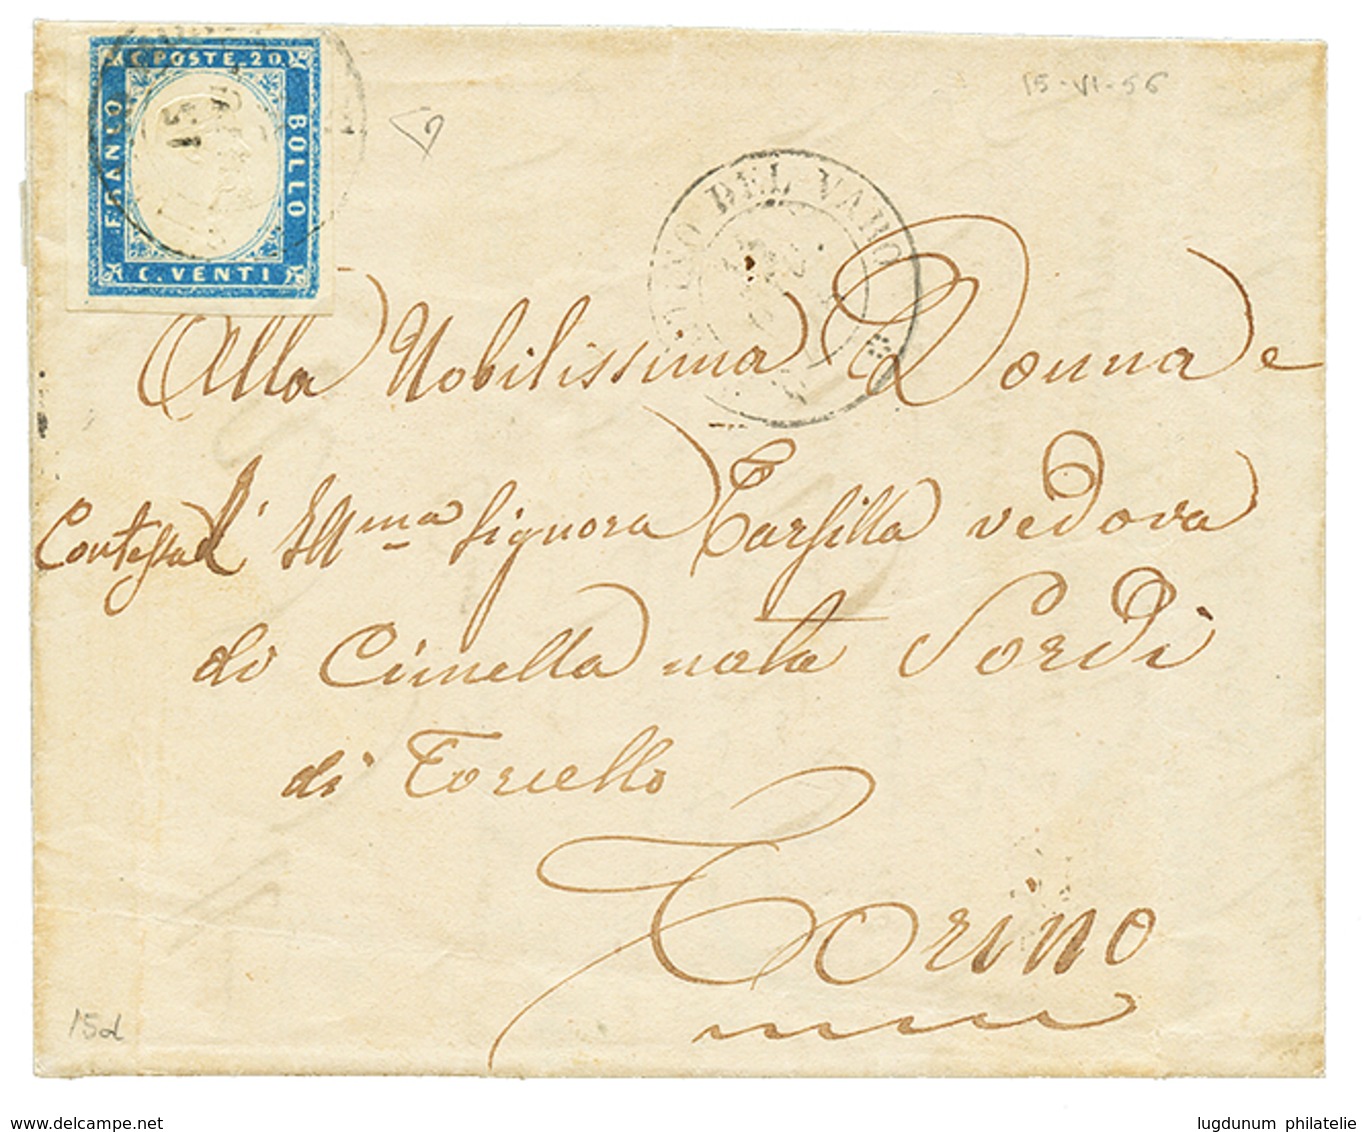 C. POSTE. 20.
FRANCO
BOLLO
C. VENTI
15
15-VI-56
DEL VARO
Alla Nobilissima Donna e
Contessa l' Ill.ma Signora Tarsilla vedova
di Cimella nata Sordi
di Torcello
Torino
15d
www.delcampe.net
lugdunum philatelie